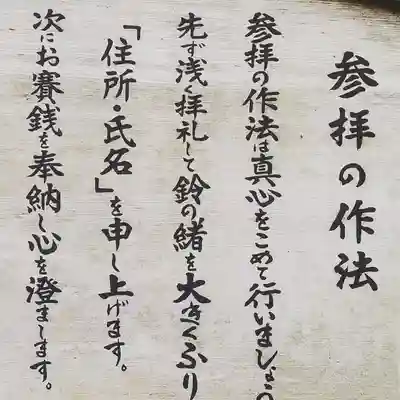 参拝の作法
参拝の作法は真心をこめて行いましょう
先ず浅く拝礼して鈴の緒を大きくふり
「住所・氏名」を申し上げます。
次にお賽銭を奉納し心を澄まします。